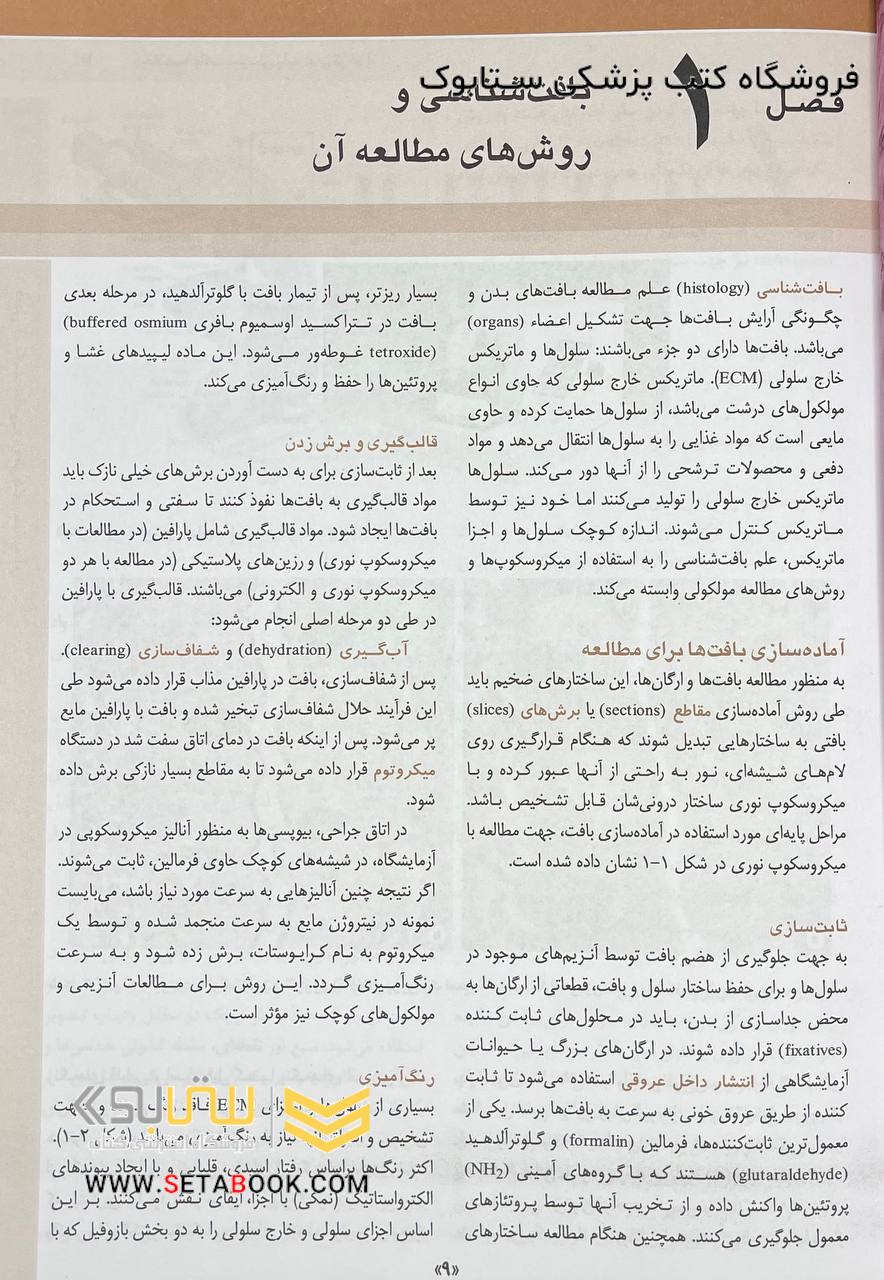 فروشگاه کتب پزشکی ستابوک
فصل ۱
بافت‌شناسی و
روش‌های مطالعه آن
بافت‌شناسی (histology) علم مطالعه بافت‌های بدن و
چگونگی آرایش بافت‌ها جهت تشکیل اعضاء (organs)
می‌باشد. بافت‌ها دارای دو جزء می‌باشند: سلول‌ها و ماتریکس
خارج سلولی (ECM). ماتریکس خارج سلولی که حاوی انواع
مولکول‌های درشت می‌باشد، از سلول‌ها حمایت کرده و حاوی
مایعی است که مواد غذایی را به سلول‌ها انتقال می‌دهد و مواد
دفعی و محصولات ترشحی را از آنها دور می‌کند. سلول‌ها
ماتریکس خارج سلولی را تولید می‌کنند اما خود نیز توسط
ماتریکس کنترل می‌شوند. اندازه کوچک سلول‌ها و اجزا
ماتریکس، علم بافت‌شناسی را به استفاده از میکروسکوپ‌ها و
روش‌های مطالعه مولکولی وابسته می‌کند.
آماده‌سازی بافت‌ها برای مطالعه
به منظور مطالعه بافت‌ها و ارگان‌ها، این ساختارهای ضخیم باید
طی روش آماده‌سازی مقاطع (sections) یا برش‌های (slices)
بافتی به ساختارهایی تبدیل شوند که هنگام قرارگیری روی
لام‌های شیشه‌ای، نور به راحتی از آنها عبور کرده و با
میکروسکوپ نوری ساختار درونی‌شان قابل تشخیص باشد.
مراحل پایه‌ای مورد استفاده در آماده‌سازی بافت، جهت مطالعه با
میکروسکوپ نوری در شکل ۱-۱ نشان داده شده است.
ثابت‌سازی
به جهت جلوگیری از هضم بافت توسط آنزیم‌های موجود در
سلول‌ها و برای حفظ ساختار سلول و بافت، قطعاتی از ارگان‌ها به
محض جداسازی از بدن، باید در محلول‌های ثابت کننده
(fixatives) قرار داده شوند. در ارگان‌های بزرگ یا حیوانات
آزمایشگاهی از انتشار داخل عروقی استفاده می‌شود تا ثابت
کننده از طریق عروق خونی به سرعت به بافت‌ها برسد. یکی از
معمول‌ترین ثابت‌کننده‌ها، فرمالین (formalin) و گلوترآلدهید
(glutaraldehyde) هستند که با گروه‌های آمینی (NH2)
پروتئین‌ها واکنش داده و از تخریب آنها توسط پروتئازهای
معمول جلوگیری می‌کنند. همچنین هنگام مطالعه ساختارهای
بسیار ریزتر، پس از تیمار بافت با گلوترآلدهید، در مرحله بعدی
بافت در تتراکسید اوسمیوم بافری (buffered osmium
tetroxide) غوطه‌ور می‌شود. این ماده لیپیدهای غشا و
پروتئین‌ها را حفظ و رنگ‌آمیزی می‌کند.
قالب‌گیری و برش زدن
بعد از ثابت‌سازی برای به دست آوردن برش‌های خیلی نازک باید
مواد قالب‌گیری به بافت‌ها نفوذ کنند تا سفتی و استحکام در
بافت‌ها ایجاد شود. مواد قالب‌گیری شامل پارافین (در مطالعات با
میکروسکوپ نوری) و رزین‌های پلاستیکی (در مطالعه با هر دو
میکروسکوپ نوری و الکترونی) می‌باشند. قالب‌گیری با پارافین
در طی دو مرحله اصلی انجام می‌شود:
آب‌گیری (dehydration) و شفاف‌سازی (clearing).
پس از شفاف‌سازی، بافت در پارافین مذاب قرار داده می‌شود طی
این فرآیند حلال شفاف‌سازی تبخیر شده و بافت با پارافین مایع
پر می‌شود. پس از اینکه بافت در دمای اتاق سفت شد در دستگاه
میکروتوم قرار داده می‌شود تا به مقاطع بسیار نازکی برش داده
شود.
در اتاق جراحی، بیوپسی‌ها به منظور آنالیز میکروسکوپی در
آزمایشگاه، در شیشه‌های کوچک حاوی فرمالین، ثابت می‌شوند.
اگر نتیجه چنین آنالیزهایی به سرعت مورد نیاز باشد، می‌بایست
نمونه در نیتروژن مایع به سرعت منجمد شده و توسط یک
میکروتوم به نام کرایوستات، برش زده شود و به سرعت
رنگ‌آمیزی گردد. این روش برای مطالعات آنزیمی و
مولکول‌های کوچک نیز مؤثر است.
رنگ‌آمیزی
بسیاری از ECM فاقد رنگ و جهت
تشخیص و نیاز به رنگ‌آمیزی (شکل ۲-۱).
اکثر رنگ‌ها براساس رفتار اسیدی، قلیایی و با ایجاد پیوندهای
الکترواستاتیک (نمکی) با اجزا، ایفای نقش می‌کنند. بر این
اساس اجزای سلولی و خارج سلولی را به دو بخش بازوفیل که با
ستابوک
فروشگاه اینترنتی کتاب
WWW.SETABOOK.COM
«۹»